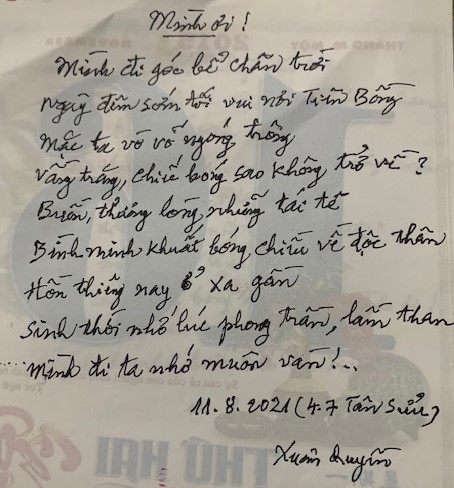 Mình ơi!
Mình đi góc bể chân trời
Ngày đêm sớm tối vui nơi Tiên Bồng
Mặc ta vò võ ngóng trông
Vầng trăng, chiếc bóng sao không trở về?
Buồn, tháng long, những tái tê
Bình minh khuất bóng, chiều về độc thân
Hồn thiêng nay ở xa gần
Sinh thời nhớ lúc phong trần, lầm than
Mình đi ta nhớ muôn vàn!...
11.8.2021 (4.7 Tân Sửu)
Xuân Quyền
THỨ HAI